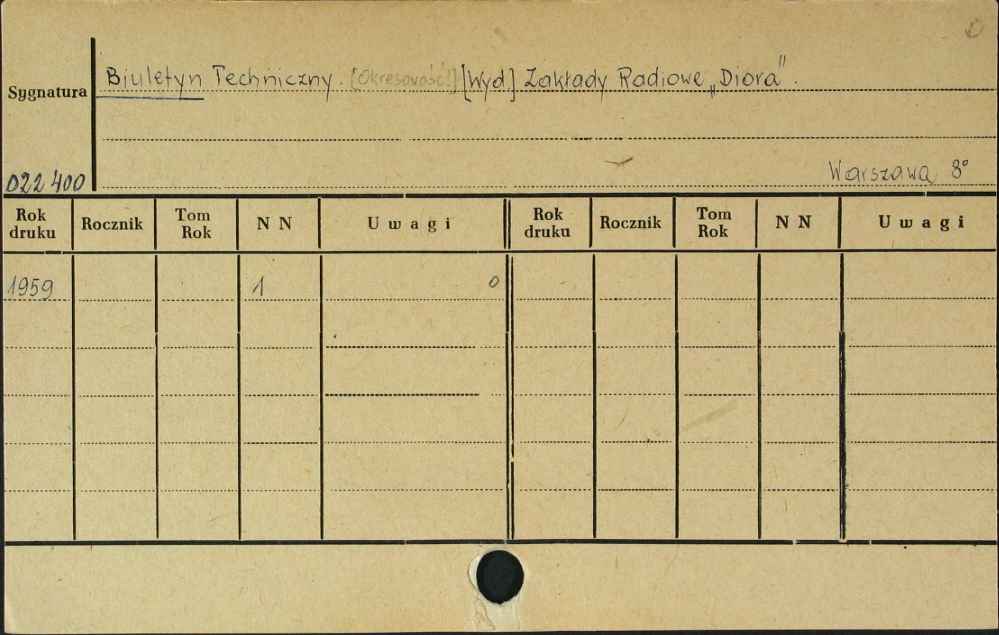 Biuletyn Techniczny. [Okresowość!] [Wyd.] Zakłady Radiowe „Diora”.
Sygnatura
D22400
Warszawa 8°
Rok druku Rocznik Tom Rok N N Uwagi Rok druku Rocznik Tom Rok N N Uwagi
1959 1 0